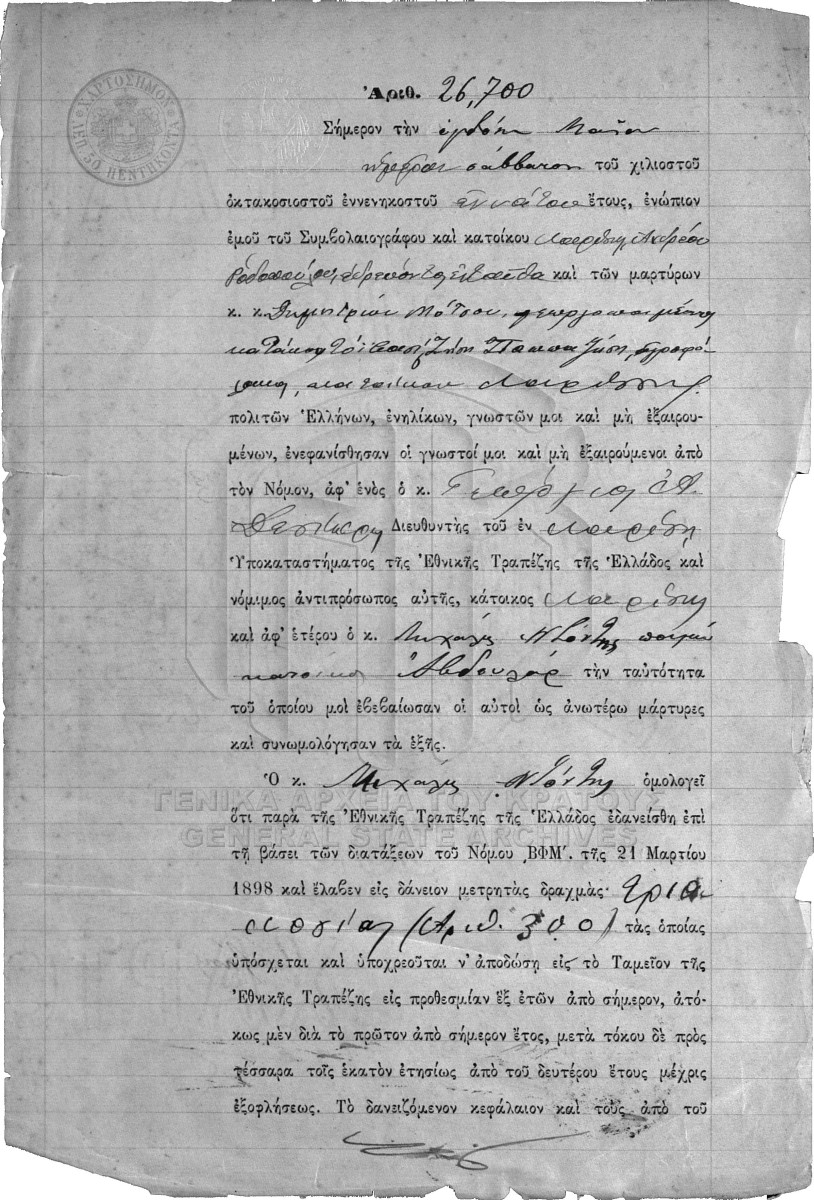 ΧΑΡΤΟΣΗΜΟΝ
ΛΕΠ. 50 ΠΕΝΤΗΚΟΝΤΑ
Ἀριθ. 26,700
Σήμερον τὴν Μαΐου
σάββατον τοῦ χιλιοστοῦ
ὀκτακοσιοστοῦ ἐννενηκοστοῦ ἐννάτου ἔτους, ἐνώπιον
ἐμοῦ τοῦ Συμβολαιογράφου καὶ κατοίκου Λαρίσης Ἀνδρέου
Ροδοπούλου, ἑδρεύοντος ἐνταῦθα καὶ τῶν μαρτύρων
κ. κ. Δημητρίου
Παππα
Λαρίσσης
πολιτῶν Ἑλλήνων, ἐνηλίκων, γνωστῶν μοι καὶ μὴ ἐξαιρου-
μένων, ἐνεφανίσθησαν οἱ γνωστοί μοι καὶ μὴ ἐξαιρούμενοι ἀπὸ
τὸν Νόμον, ἀφ' ἑνὸς ὁ κ. Γεώργιος Α.
Διευθυντὴς τοῦ ἐν Λαρίσῃ
Ὑποκαταστήματος τῆς Ἐθνικῆς Τραπέζης τῆς Ἑλλάδος καὶ
νόμιμος ἀντιπρόσωπος αὐτῆς, κάτοικος Λαρίσης
καὶ ἀφ' ἑτέρου ὁ κ. Μιχάλης Ντόντης ποιμὴν
κάτοικος Ἀβδουλάρ τὴν ταὐτότητα
τοῦ ὁποίου μοὶ ἐβεβαίωσαν οἱ αὐτοὶ ὡς ἀνωτέρω μάρτυρες
καὶ συνωμολόγησαν τὰ ἑξῆς.
Ὁ κ. Μιχάλης Ντόντης ὁμολογεῖ
ὅτι παρὰ τῆς Ἐθνικῆς Τραπέζης τῆς Ἑλλάδος ἐδανείσθη ἐπὶ
τῇ βάσει τῶν διατάξεων τοῦ Νόμου ΒΦΜ΄. τῆς 21 Μαρτίου
1898 καὶ ἔλαβεν εἰς δάνειον μετρητὰς δραχμὰς· τρια-
κοσίας (Ἀριθ. 300) τὰς ὁποίας
ὑπόσχεται καὶ ὑποχρεοῦται ν' ἀποδώσῃ εἰς τὸ Ταμεῖον τῆς
Ἐθνικῆς Τραπέζης εἰς προθεσμίαν ἓξ ἐτῶν ἀπὸ σήμερον, ἀτό-
κως μὲν διὰ τὸ πρῶτον ἀπὸ σήμερον ἔτος, μετὰ τόκου δὲ πρὸς
τέσσαρα τοῖς ἑκατὸν ἐτησίως ἀπὸ τοῦ δευτέρου ἔτους μέχρις
ἐξοφλήσεως. Τὸ δανειζόμενον κεφάλαιον καὶ τοὺς ἀπὸ τοῦ
ΓΕΝΙΚΑ ΑΡΧΕΙΑ ΤΟΥ ΚΡΑΤΟΥΣ
GENERAL STATE ARCHIVES